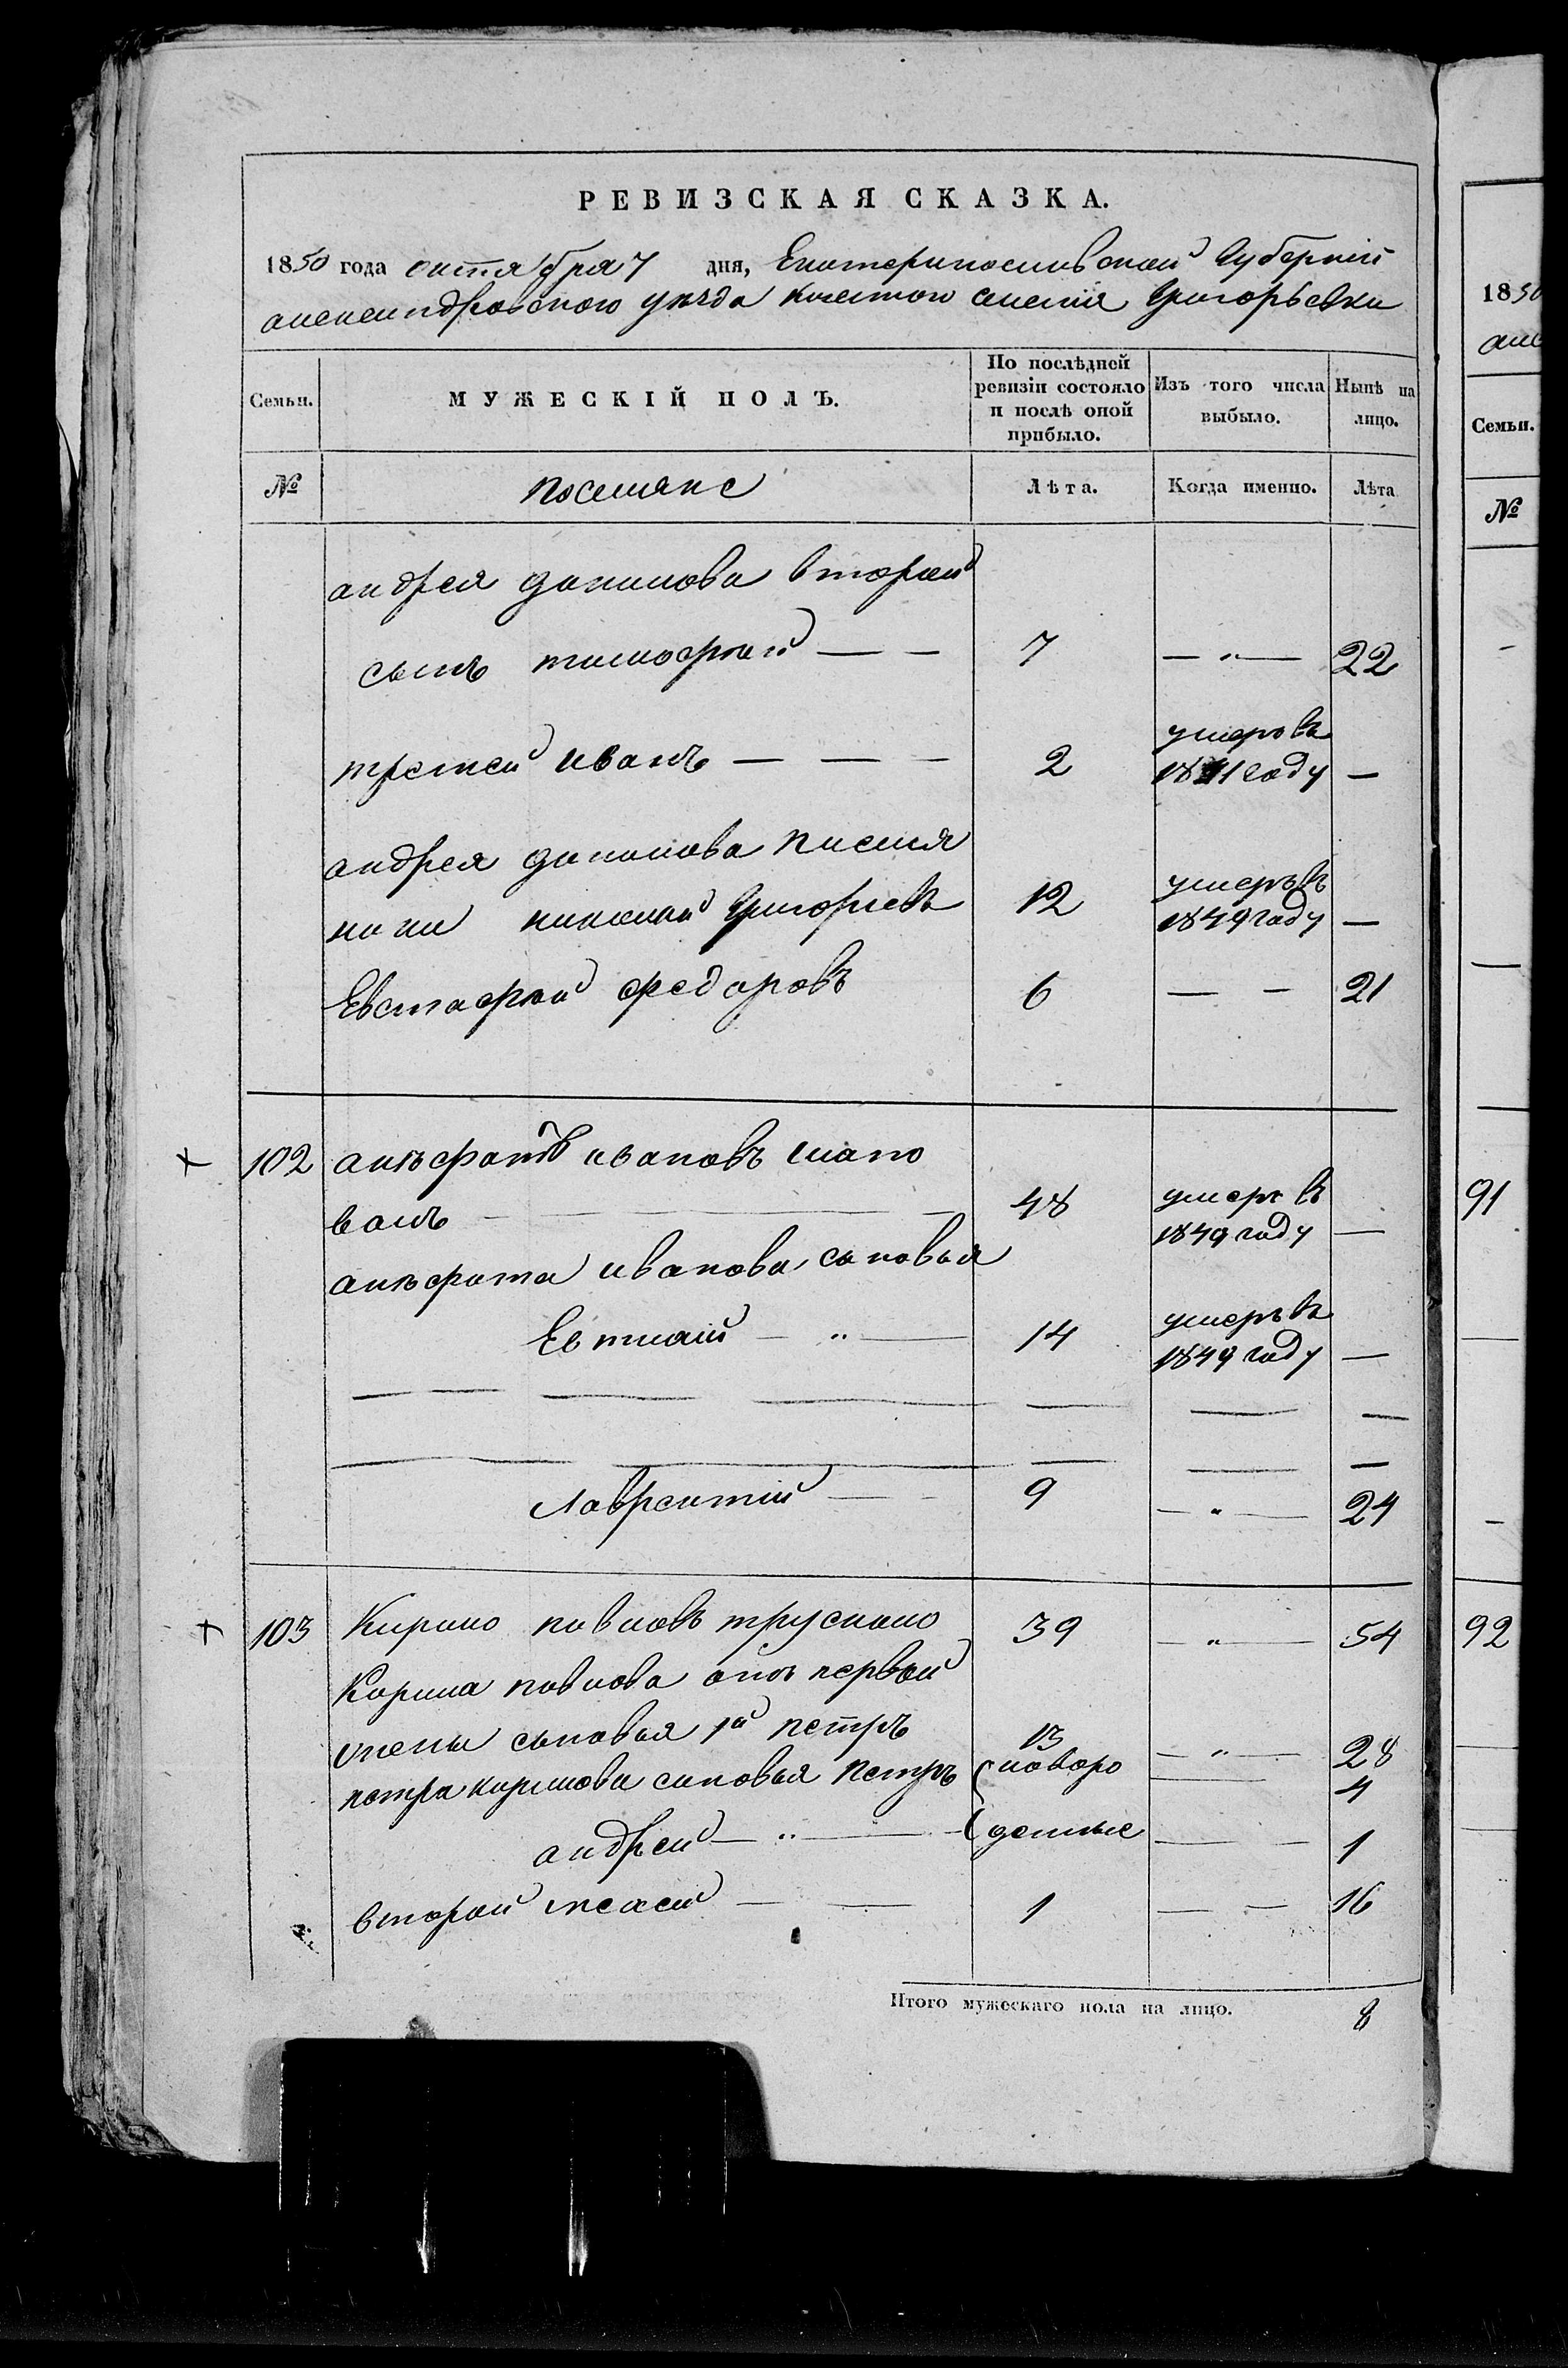 РЕВИЗСКАЯ СКАЗКА.
1850 года октября 7 дня, Екатеринославской Губернии
александровского уезда селения Григорьевки
Семьи. МУЖЕСКІЙ ПОЛЪ. По послѣдней ревизіи состояло и послѣ оной прибыло. Изъ того числа выбыло. Нынѣ на лицо.
№ поселяне Лѣта. Когда именно. Лѣта
андрея данилова второй
сынъ тимофей — — 7 — " — 22
третей иванъ — — — 2 умеръ въ 1841 году —
андрея данилова племя
ники николай Григорьевъ 12 умеръ въ 1849 году —
Евстафей федоровъ 6 — — 21
102 ивановъ шапо
валъ — 48 умеръ въ 1849 году —
иванова сыновья
— " — 14 умеръ въ 1849 году —
Лаврентий — — 9 — " — 24
103 Кирило павловъ 39 — " — 54
Кирила павлова отъ первой
жены сыновья 1й петръ 13 — " — 28
петра кирилова сыновья петръ новоро — 4
андрей — " — денные — — 1
второй — — 1 — — 16
Итого мужескаго пола на лицо. 8
1850
алек
Семьи.
№
91
92